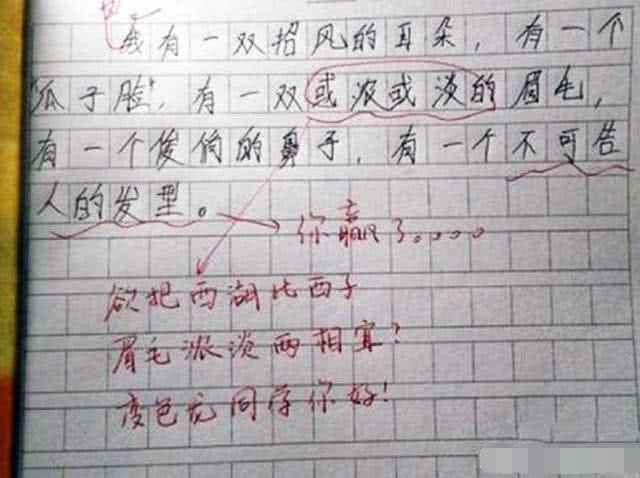 我有一双招风的耳朵，有一个
“瓜子脸”，有一双或浓或淡的眉毛，
有一个俊俏的鼻子，有一个不可告
人的发型。
你赢了。。。。
欲把西湖比西子
眉毛浓淡两相宜？
变色龙同学你好！